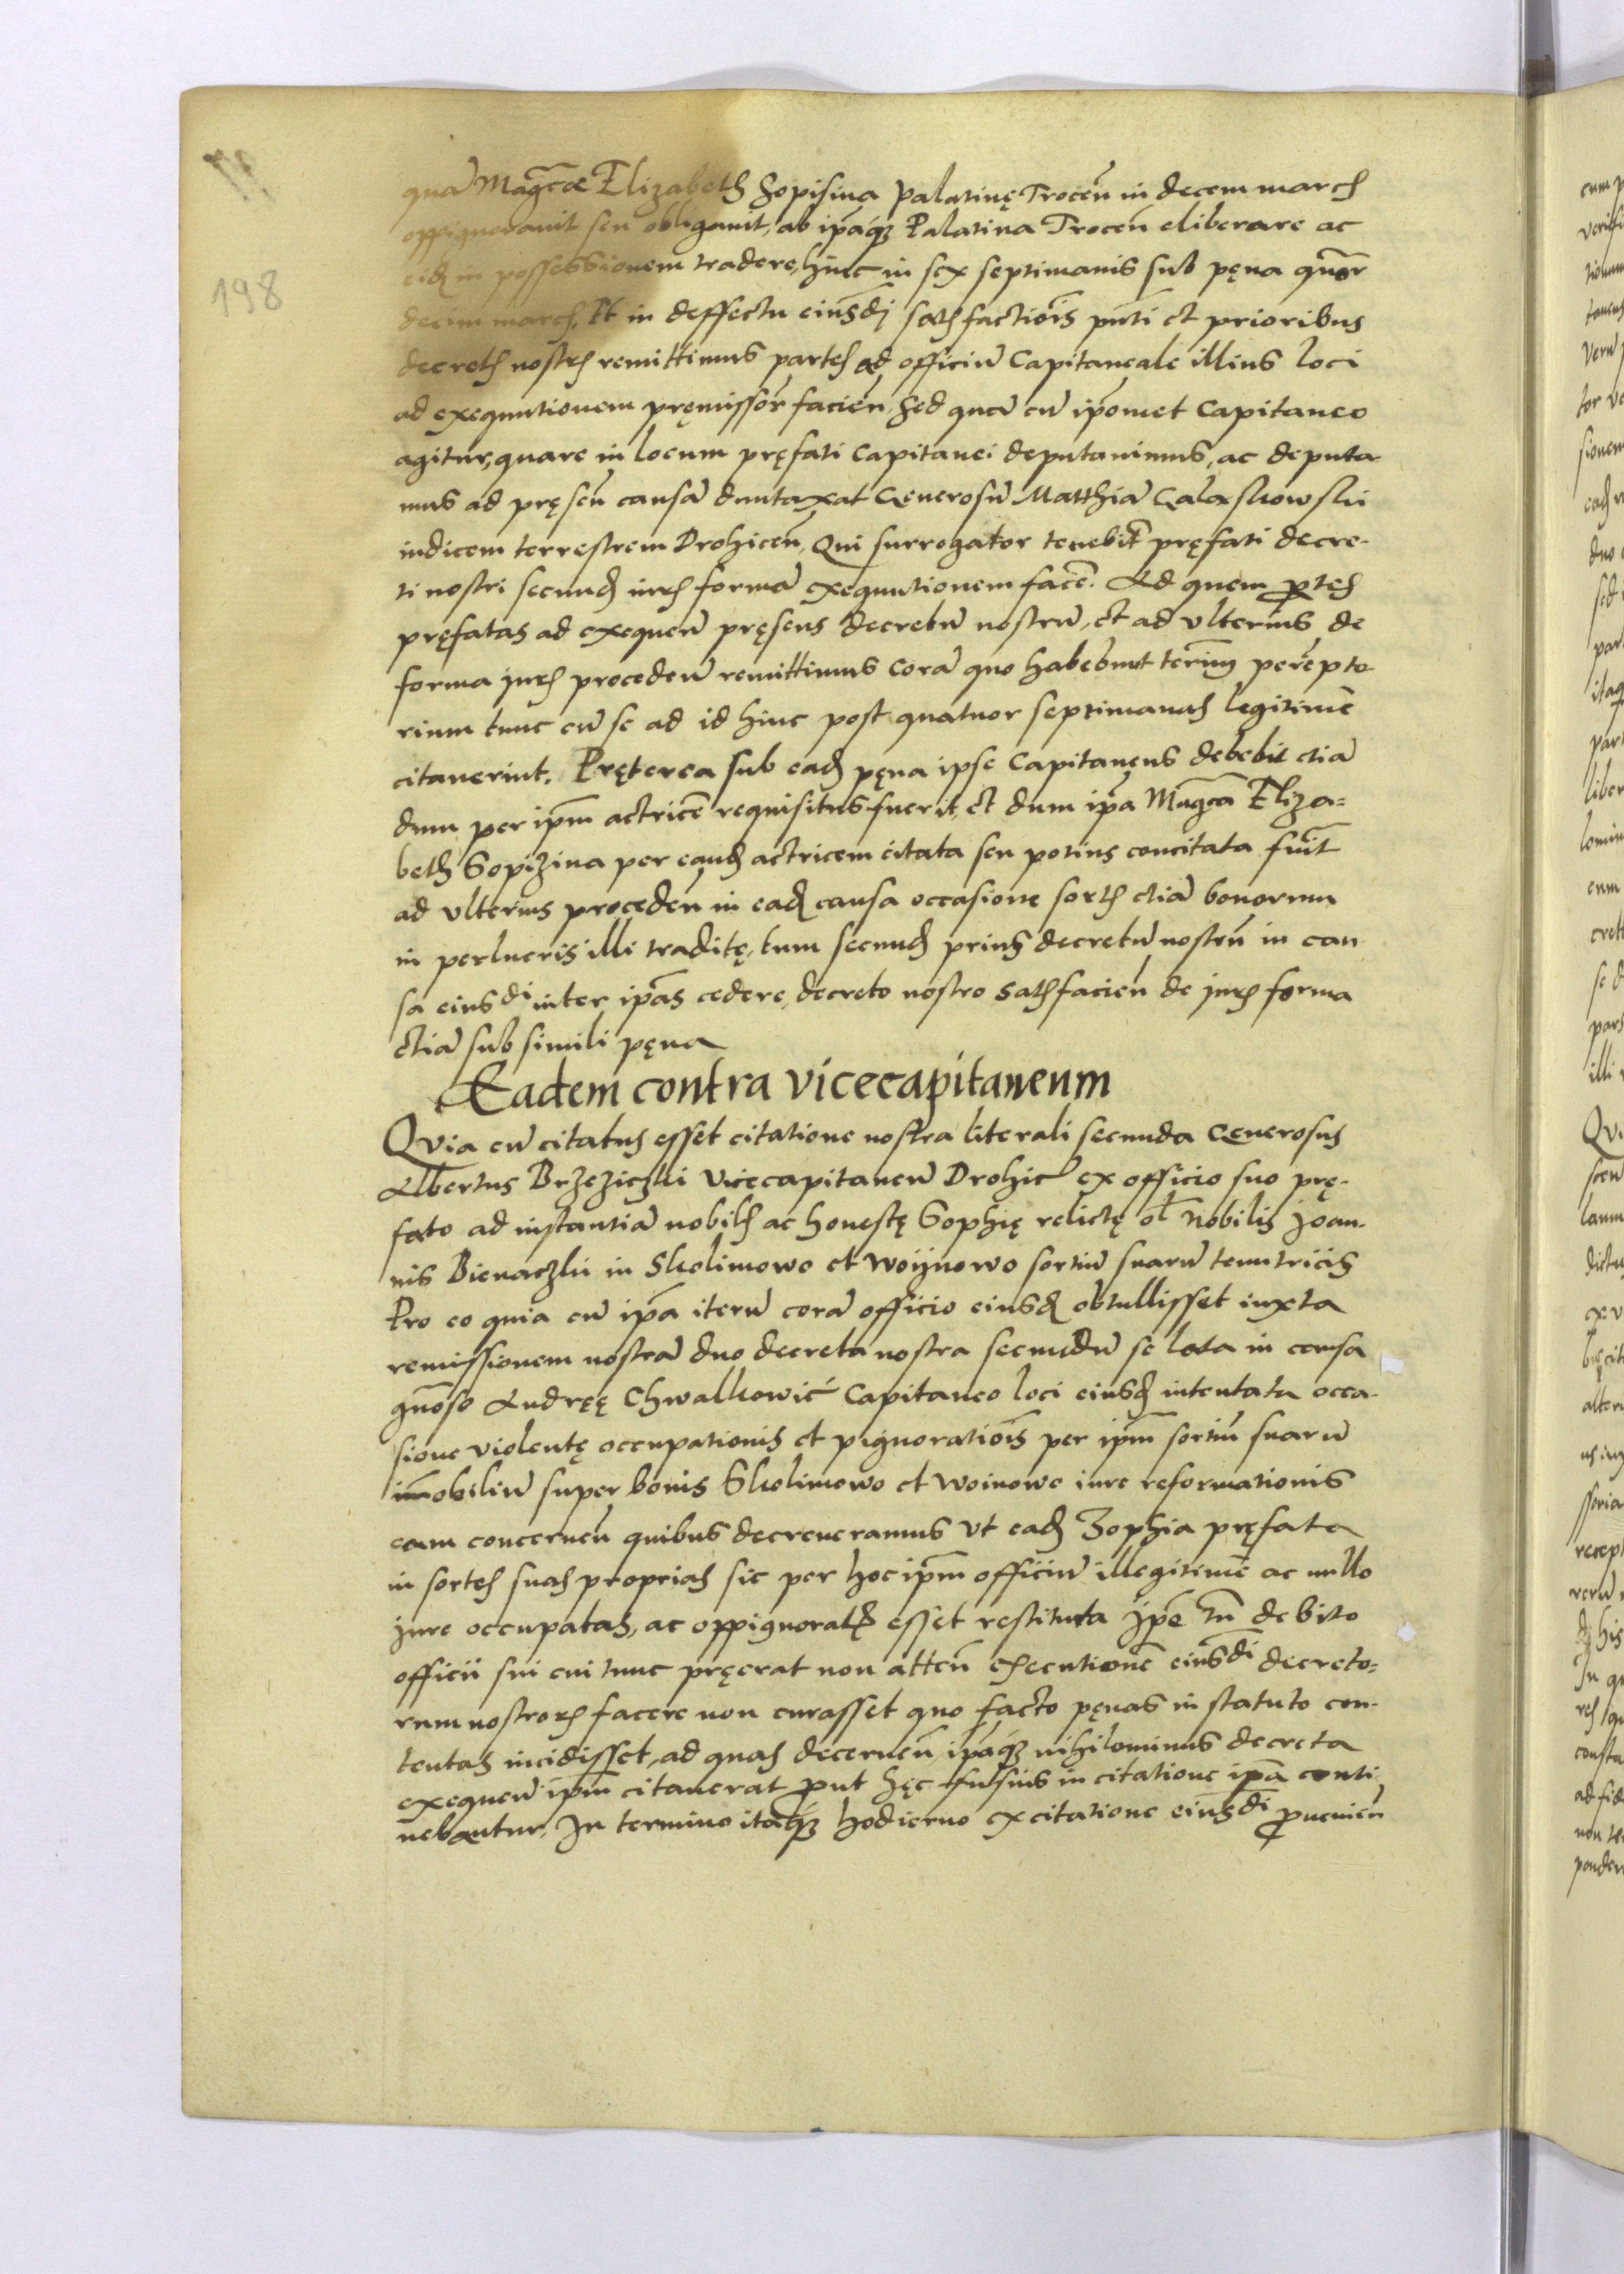 198
quā Magc̄æ Elizabeth Sopisina Palatinę Trocen̄ in decem march
oppignorauit seu obligauit, ab ip̄aq̨ Palatina Trocen̄ eliberare ac
eid̄ in possessionem tradere, hinc in sex septimanis sub pęna quor
decim march. Et in deffectu eiusdj satisfactiōis pn̄ti et prioribus
decretis nostris remittimus partes ad officiū Capitaneale illius loci
ad exequutionem pręmissor̄ facien̄, Sed quā cū ip̄omet Capitaneo
agitur, quare in locum pręfati Capitanei deputauimus, ac deputa
mus ad pręsen̄ causā duntaxat Generosū Matthiā
iudicem terrestrem Drohicen̄, Qui surrogator tenebit̄ pręfati decre-
ti nostri secund̄ iuris formā exequutionem facē. Ad quem p̄tes
pręfatas ad exequen̄ pręsens decretū nostrū, et ad vlterius de
forma juris proceden̄ remittimus corā quo habebunt term̄ perempto
rium tunc cū se ad id hinc post quatuor septimanas legitimē
citauerint. Pręterea sub ead̄ pęna ipse Capitaneus debebit etiā
dum per ip̄m actricē requisitus fuerit, et dum ip̄a Magc̄a Eliza=
beth Sopizina per eand̄ actricem citata seu potius concitata fuīt
ad vlterius proceden̄ in ead̄ causa occasione sortis etiā bonorum
in perlucris illi traditę, tum secund̄ prius decretū nostrū in cau
sa eiusdi inter ip̄as cedere, decreto nostro satisfacien̄ de juris forma
etiā sub simili pęna
Eadem contra vicecapitaneum
Qvia cū citatus esset citatione nostra literali secunda Generosus
Albertus Brzeziczki Vicecapitaneū Drohic̄ ex officio suo prę-
fato ad instantiā nobilis ac honestę Sophię relictę ol̄ Nobilis Joan-
nis Bienaczki in Skolimowo et Woijnowo sortiū suarū tenutricis
Pro eo quia cū ip̄a iterū corā officio eiusd̄ obtullisset iuxta
remissionem nostrā duo decreta nostra secundū se lata in causa
gn̄oso Andręę Chwalkowić Capitaneo loci eiusd̄ intentata occa-
sione violentę occupationis et pignoratiōis per ip̄m sortiū suarū
im̄obiliū super bonis Skolimowo et Woinowo iure reformationis
eam concernen̄ quibus decreueramus vt ead̄ Zophia pręfata
in sortes suas proprias sic per hoc ip̄m officiū illegitimē ac nullo
jure occupatas, ac oppignoratas esset restituta Jp̄e tn̄ debito
officii sui cui tunc pręerat non atten̄ executionē eiusdi decreto=
rum nostror̄ facere non curasset quo facto pęnas in statuto con-
tentas incidisset, ad quas decernen̄ ip̄aq̨ nihilominus decreta
exequen̄ ip̄m citauerat p̄ut hęc fusius in citatione ip̄a conti
nebantur. In termino itaq̨ hodierno ex citatione eiusdi p̄uenien̄